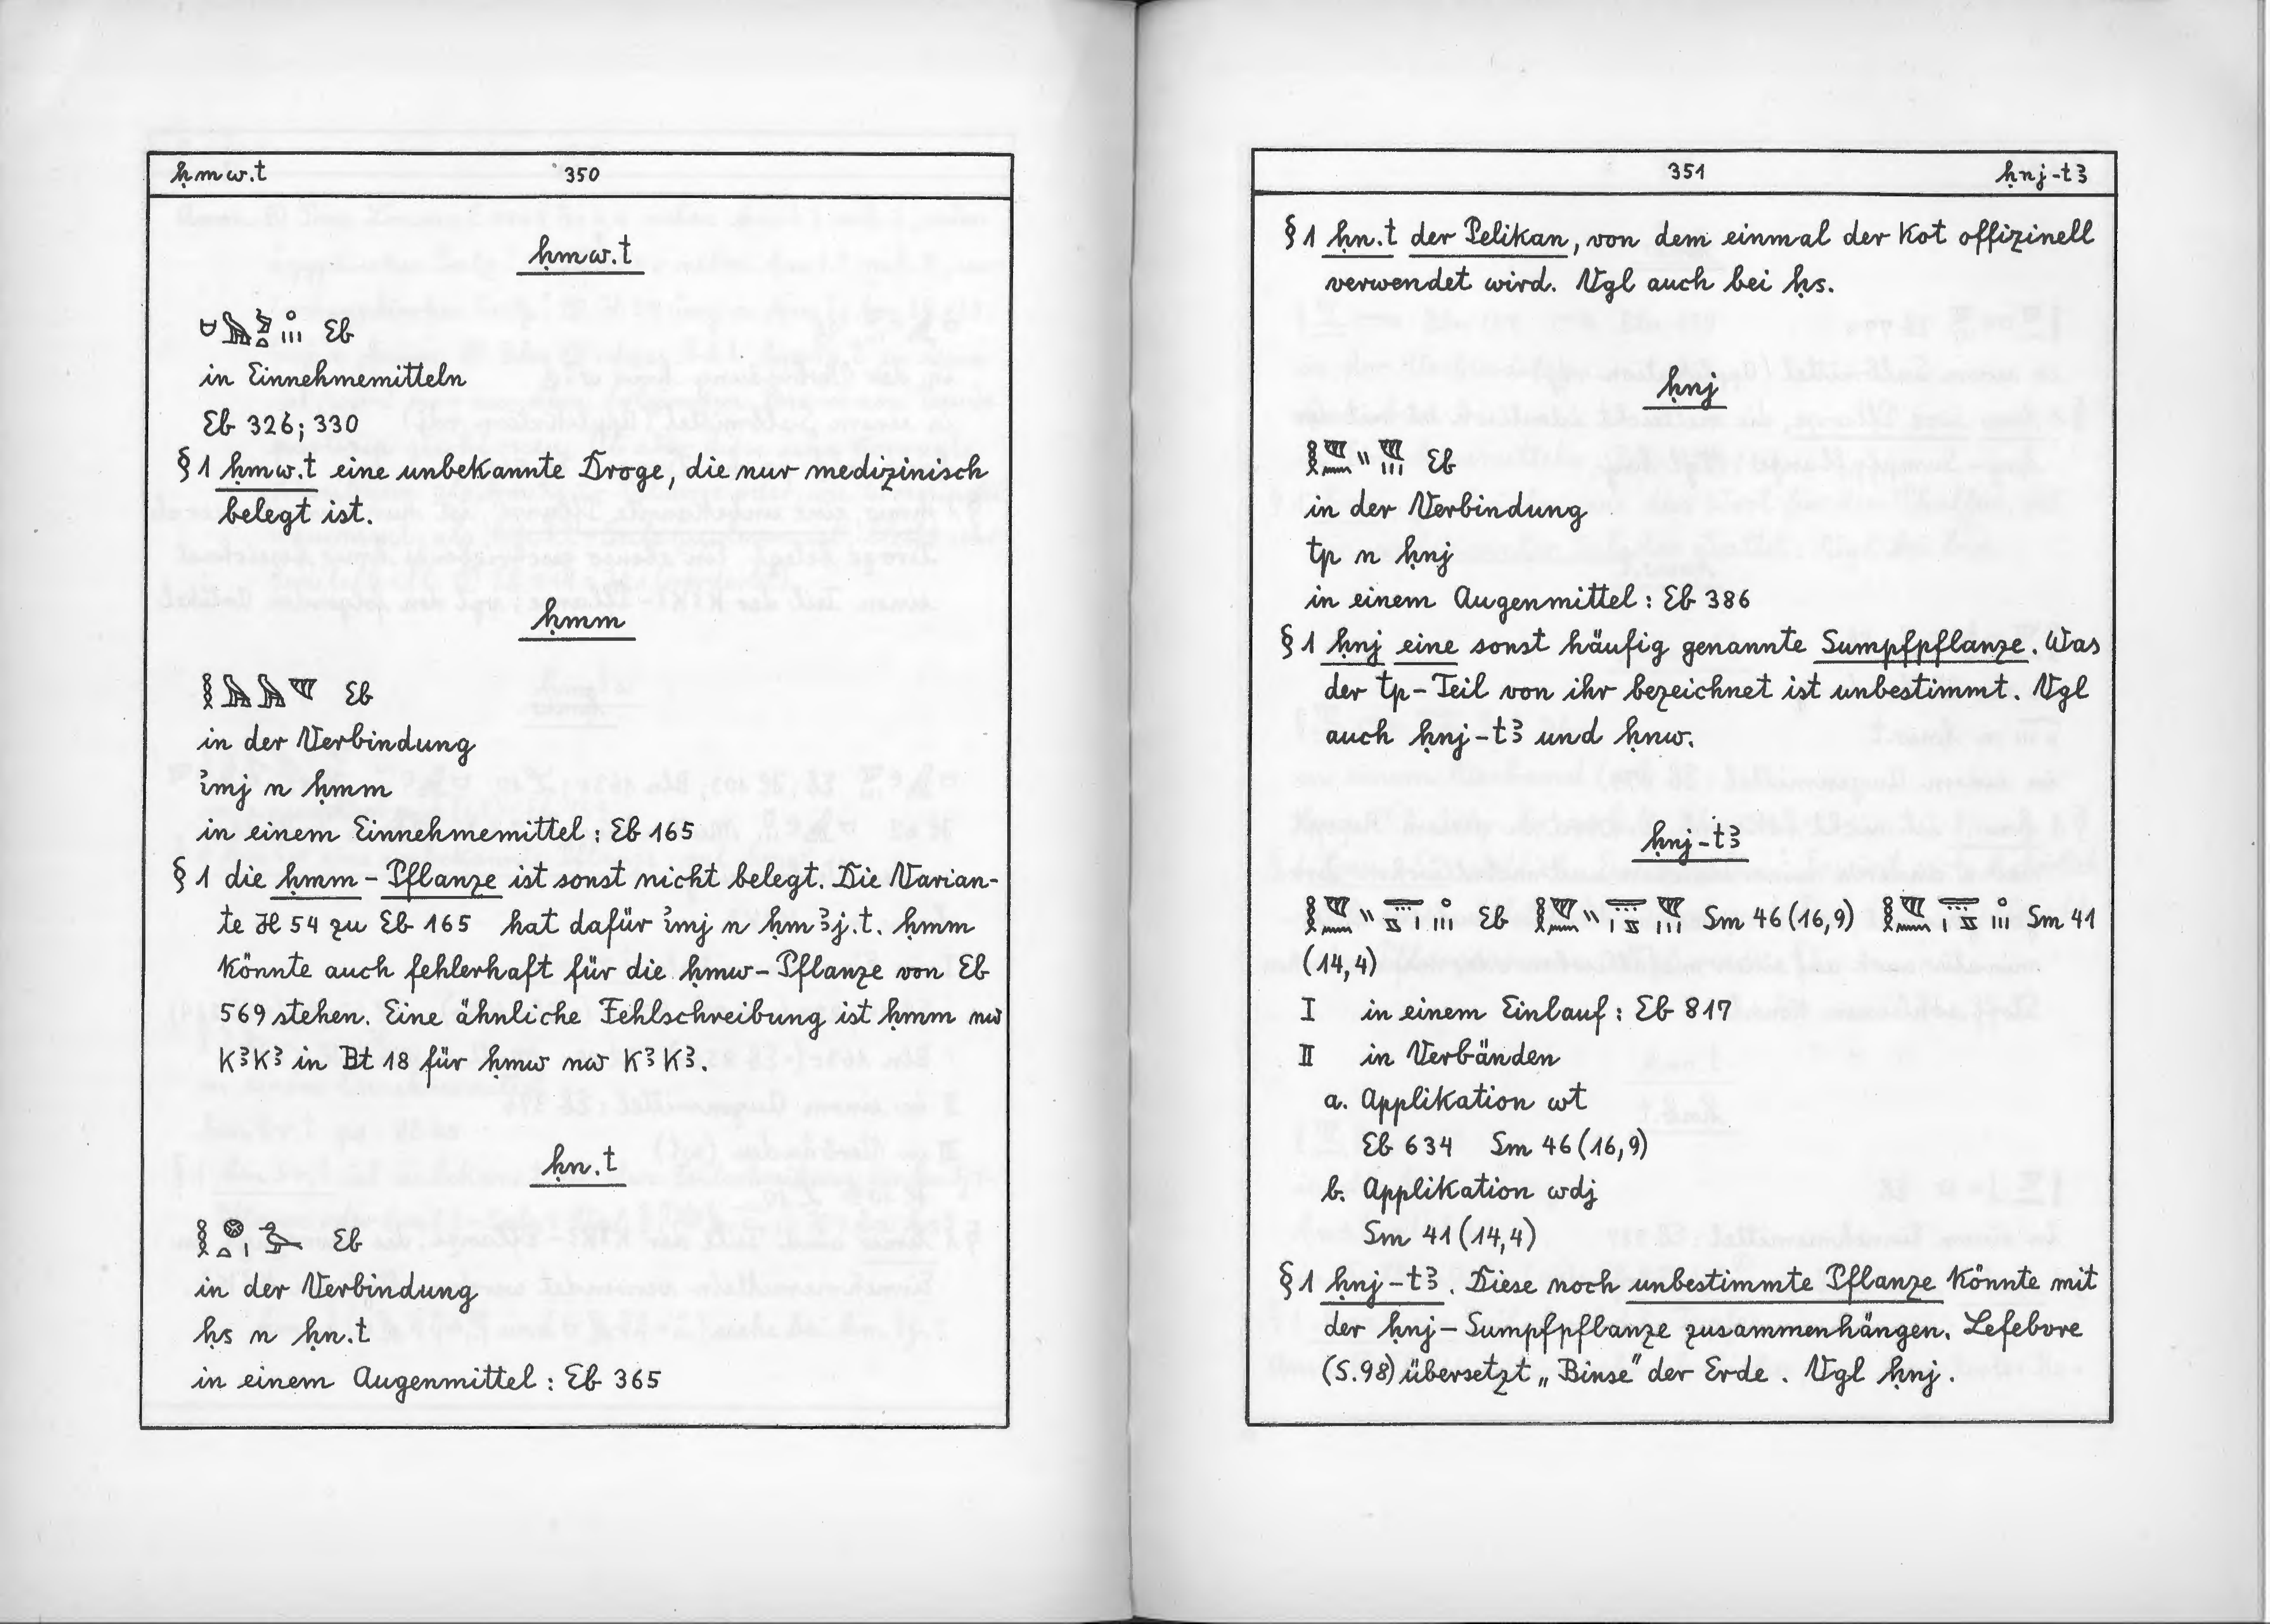 ḥmw.t 350
ḥmw.t
Eb
in Einnehmemitteln
Eb 326; 330
§ 1 ḥmw.t eine unbekannte Droge, die nur medizinisch
belegt ist.
ḥmm
Eb
in der Verbindung
ꞽmj n ḥmm
in einem Einnehmemittel : Eb 165
§ 1 die ḥmm - Pflanze ist sonst nicht belegt. Die Varian-
te H 54 zu Eb 165 hat dafür ꞽmj n ḥmꜣj.t. ḥmm
könnte auch fehlerhaft für die ḥmw - Pflanze von Eb
569 stehen. Eine ähnliche Fehlschreibung ist ḥmm nw
kꜣkꜣ in Bt 18 für ḥmw nw kꜣkꜣ.
ḥn.t
Eb
in der Verbindung
ḥs n ḥn.t
in einem Augenmittel : Eb 365
351 ḥnj-tꜣ
§ 1 ḥn.t der Pelikan, von dem einmal der Kot offizinell
verwendet wird. Vgl auch bei ḥs.
ḥnj
Eb
in der Verbindung
tp n ḥnj
in einem Augenmittel : Eb 386
§ 1 ḥnj eine sonst häufig genannte Sumpfpflanze. Was
der tp-Teil von ihr bezeichnet ist unbestimmt. Vgl
auch ḥnj-tꜣ und ḥnw.
ḥnj-tꜣ
Eb Sm 46 (16,9) Sm 41
(14,4)
I in einem Einlauf : Eb 817
II in Verbänden
a. Applikation wt
Eb 634 Sm 46 (16,9)
b. Applikation wdj
Sm 41 (14,4)
§ 1 ḥnj-tꜣ. Diese noch unbestimmte Pflanze könnte mit
der ḥnj - Sumpfpflanze zusammenhängen. Lefebvre
(S. 98) übersetzt „Binse" der Erde. Vgl ḥnj.